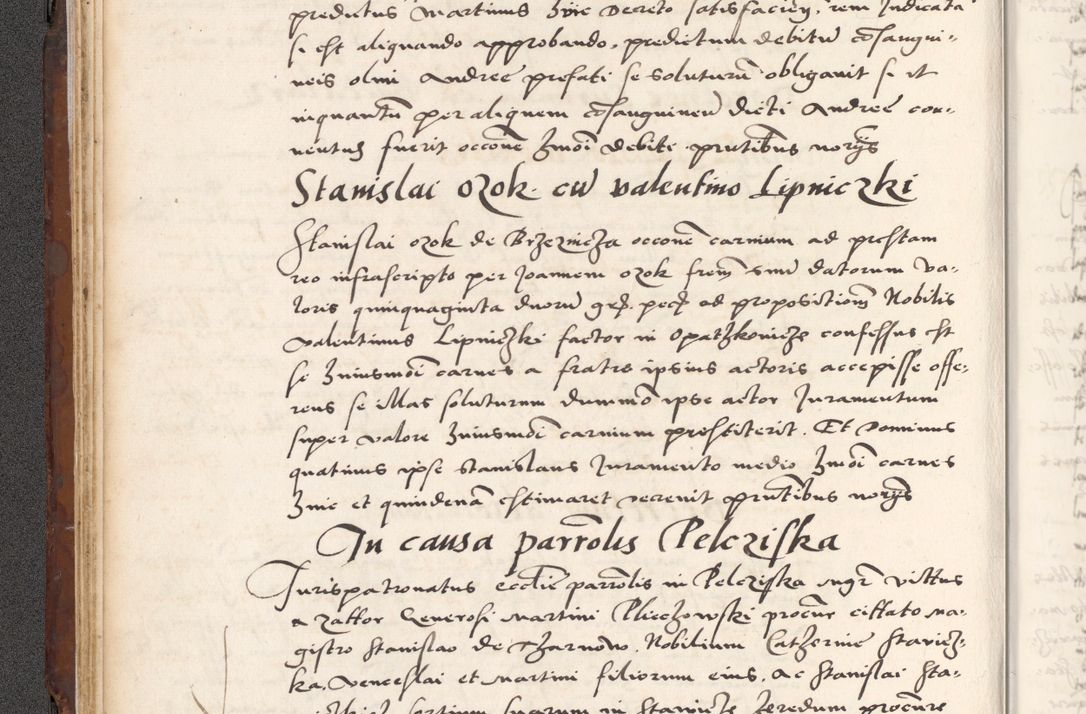 predictus Martinus huic decreto satisfacien, rem Judicata
si est aliquando approbando, predictum debitū cōsangui-
neis olim Andree prefati se soluturū obligauit si it
inquantū per aliquem cōsanguineū dicti Andree con-
uentus fuerit occōne hmōi debiti prntibus
Stanislai Ozok cū Valentino Lipniczki
Stanislai Ozok de Brzeznicza occōne carnium ad prestam
reo infrascripto per Joannem Ozok frem suū datorum va-
loris quinquaginta duorū gr. pec. ad propositionē Nobilis
Valentinus Lipniczki factor in Opatzkouicze confessus est
se huiusmōi carnes a fratre ipsius actoris accepisse offe-
rens se illas soluturum dummō ipse actor Juramentum
super valore huiusmōi carnium prestiterit. Et Dominus
quatinus ipse Stanislaus Juramento medio hmōi carnes
hinc et quindenā estimaret decreuit prntibus
In causa parrōlis Pelcziska
Jurispatronatus ecclīe parrōlis in Pelcziska mgr vittus
a Zattor Generosi Martini Pliechowski procur cittato Ma-
gistro Stanislao de Tharnow. Nobilium Catherine Stawicz-
ka, Venceslai et Martini filiorum eius, Ac Stanislai Sta-
sortium suarum in Stawicze heredum procure